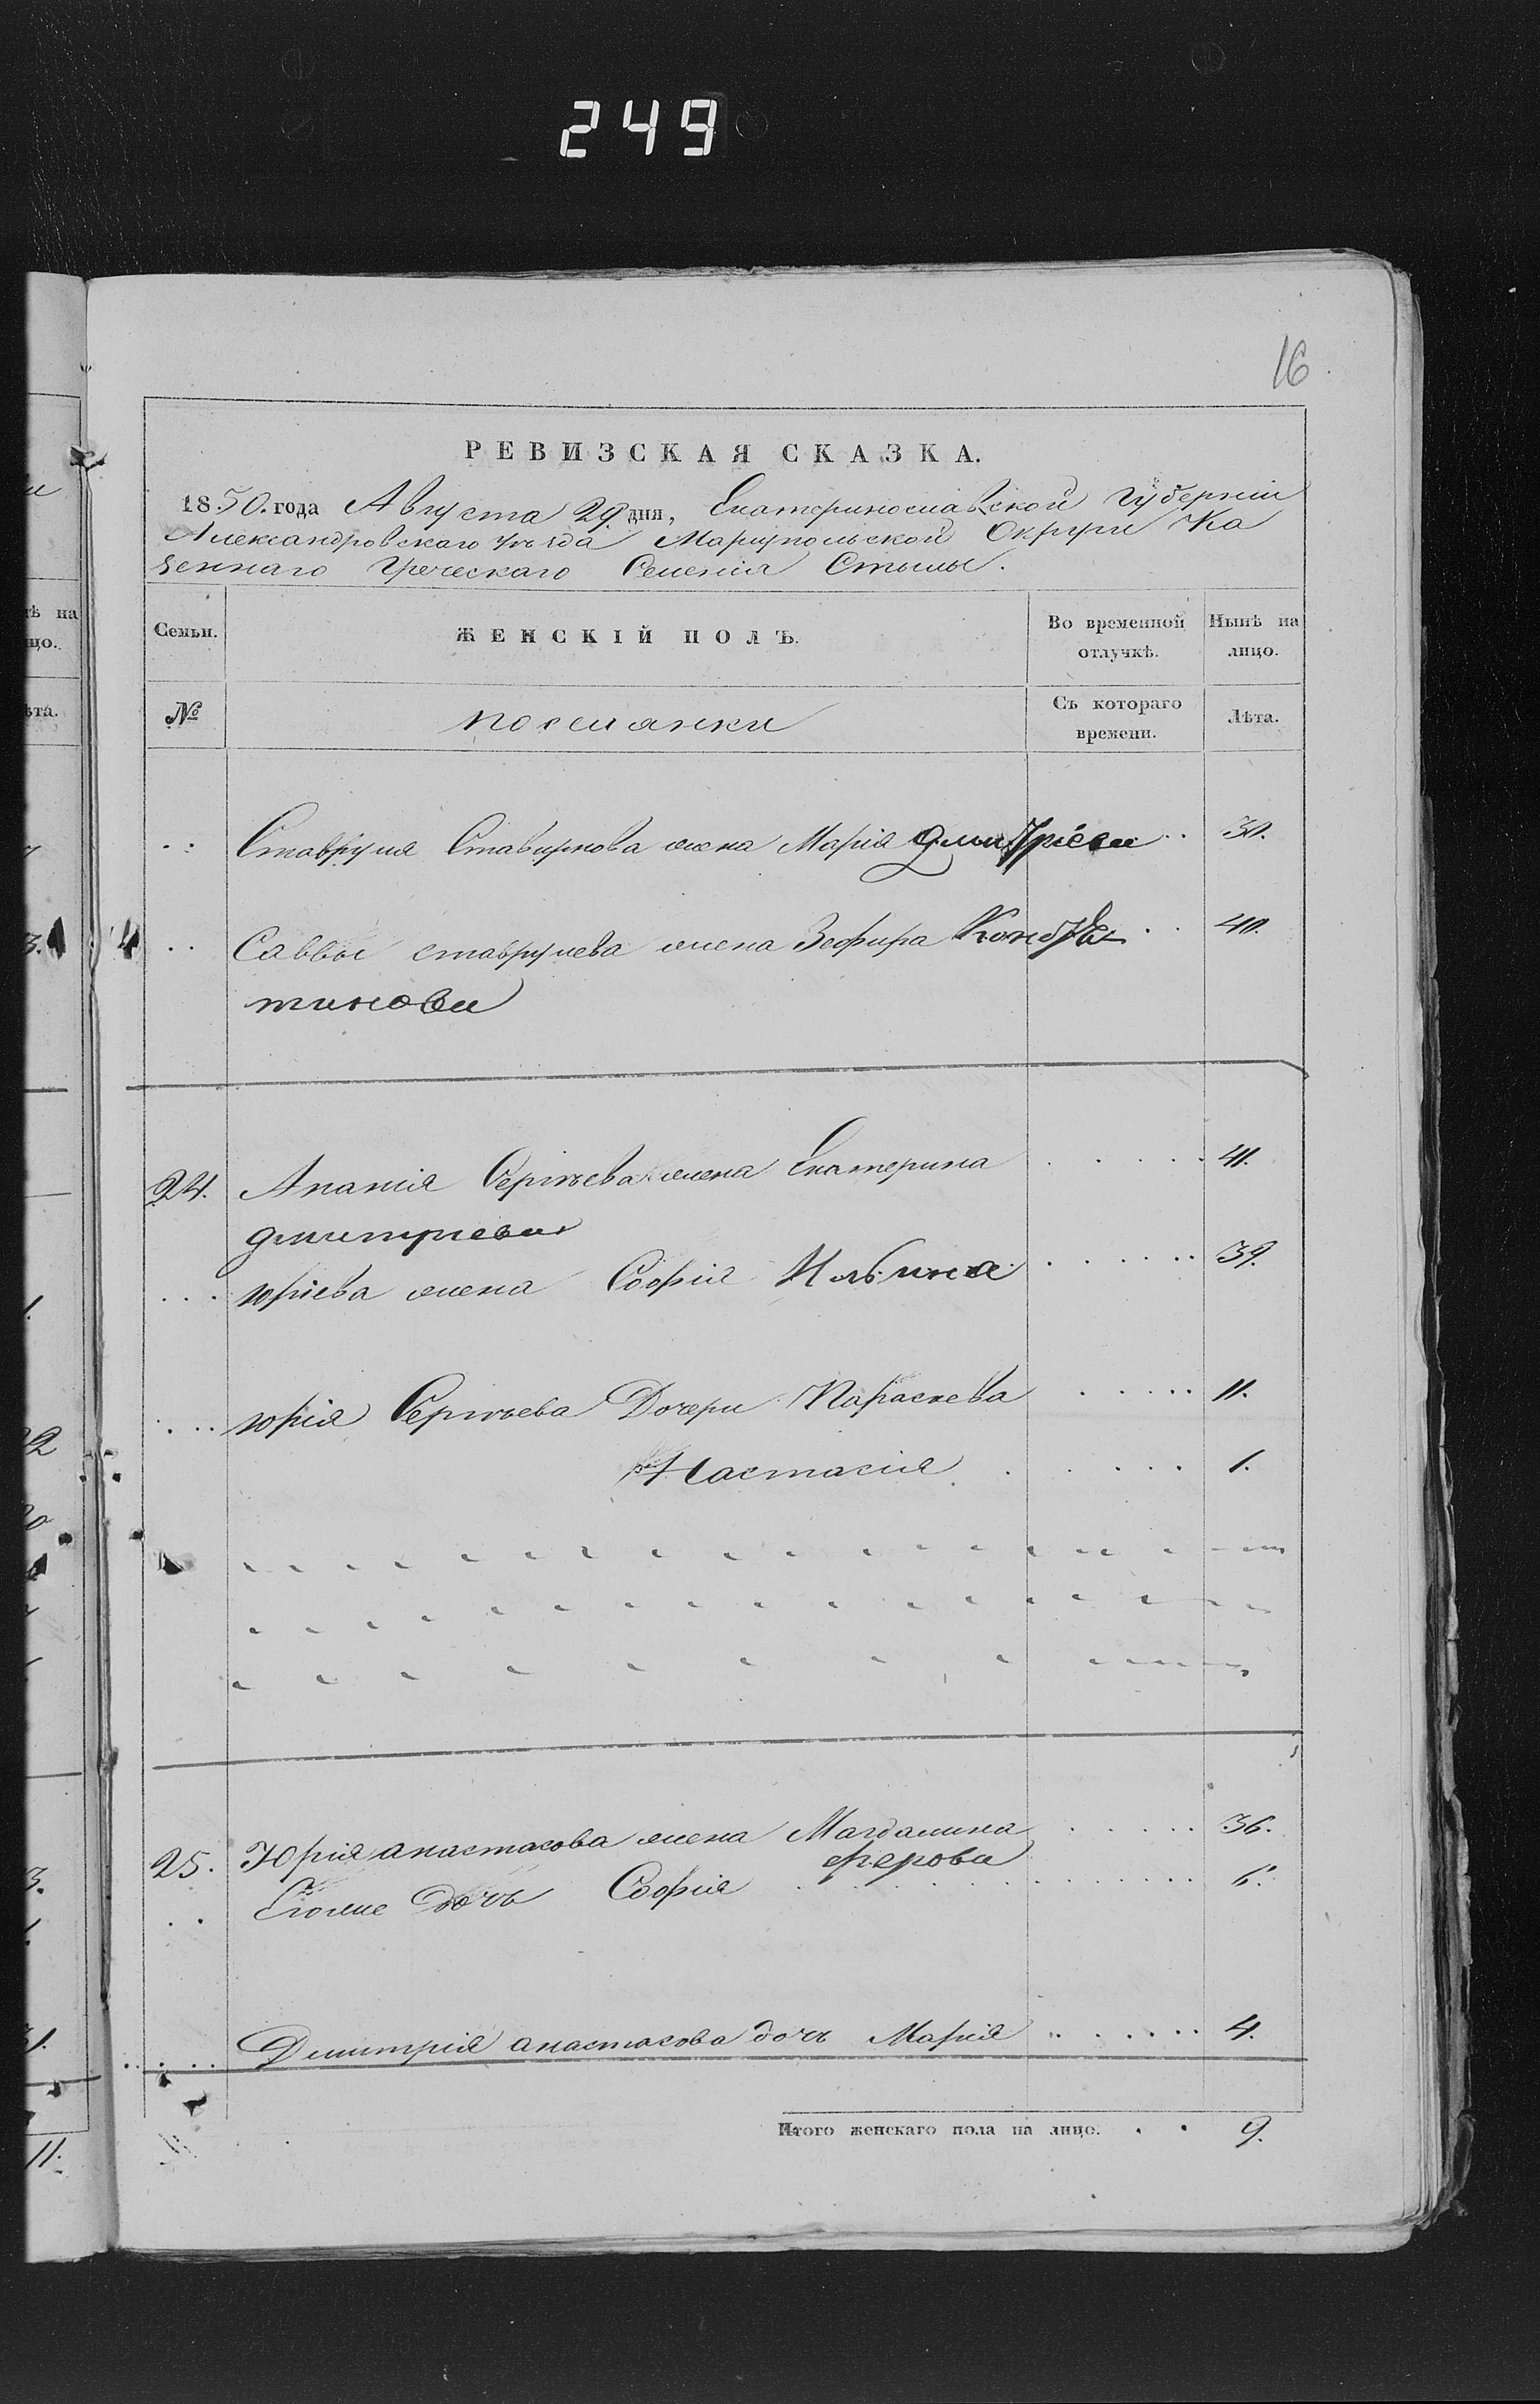 249
16
РЕВИЗСКАЯ СКАЗКА.
1850. года Августа 29 дня, Екатеринославской Губерніи
Александровскаго уѣзда Маріупольской Округи Ка
зеннаго Греческаго Селенія Стылы.
Семьи. ЖЕНСКІЙ ПОЛЪ. Во временной отлучкѣ. Нынѣ на лицо.
№ поселянки Съ котораго времени. Лѣта.
Ставруля Ставринова жена Марія Дмитріева 30.
Саввы ставрулева жена Зефира Констан 40.
тинова
24. Анания Сергѣева жена Екатерина 41.
Дмитриева
юріева жена Софія Ильина 39.
юрія Сергѣева Дочери Параскева 11.
Настасія 1.
25. Юрія анастасова жена Магдалина 36.
Федорова
Егоже Дочь Софія 6.
Димитрія анастасова дочь Марія 4.
Итого женскаго пола на лицо. 9.
нѣ на
цо.
ѣта.
11.